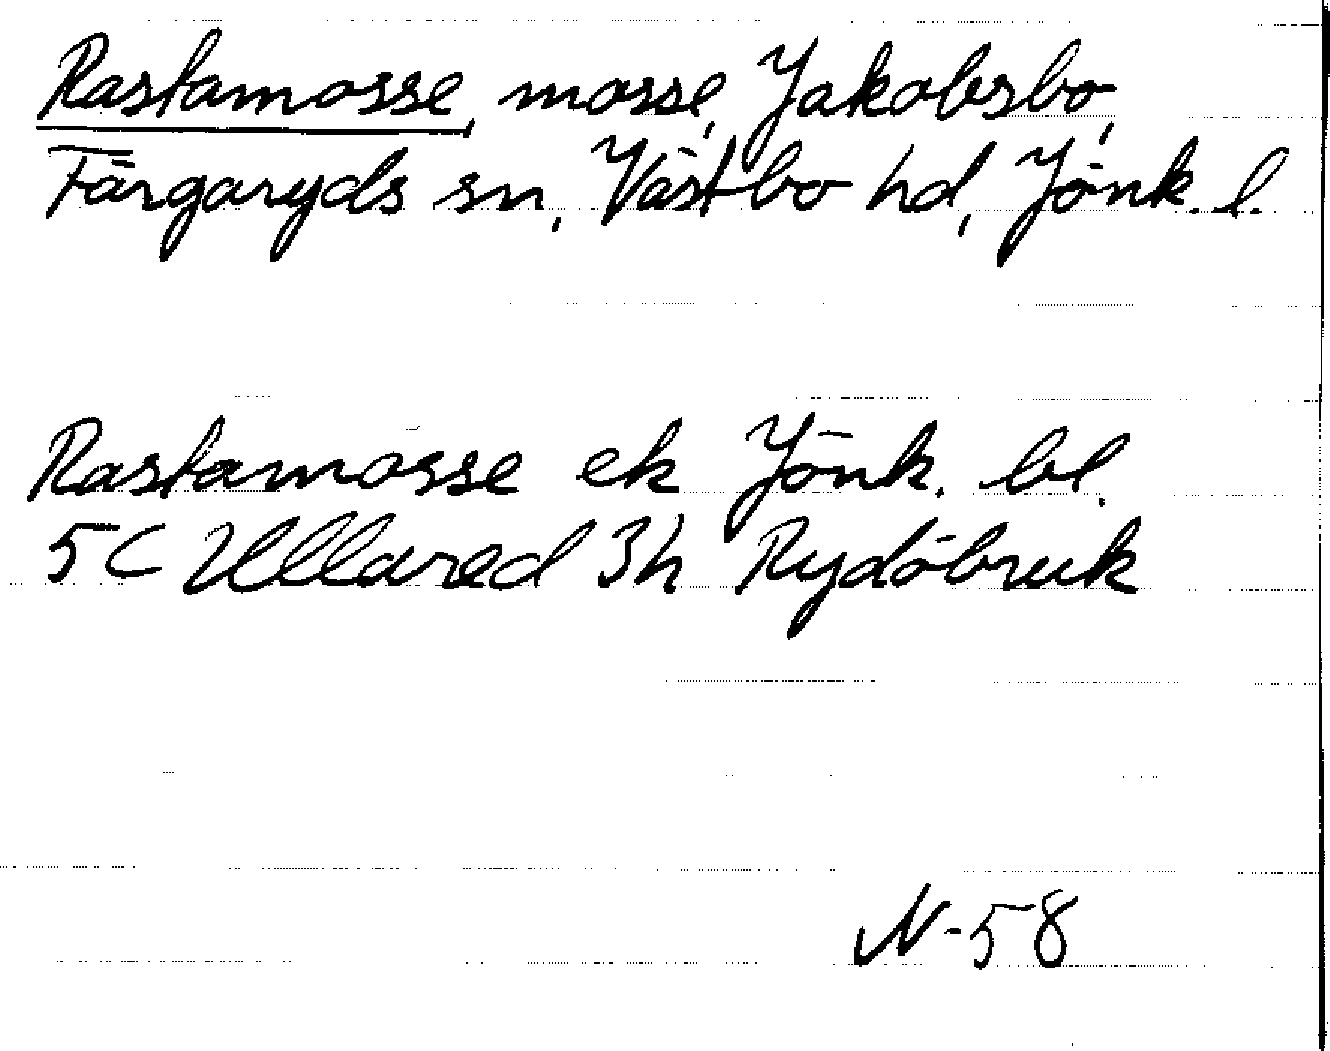 Rastamosse, mosse, Jakobsbo,
Färgaryds sn, Västbo hd, Jönk. l.
Rastamosse ek Jönk. bl.
5C Ullared 3h Rydöbruk
N-58